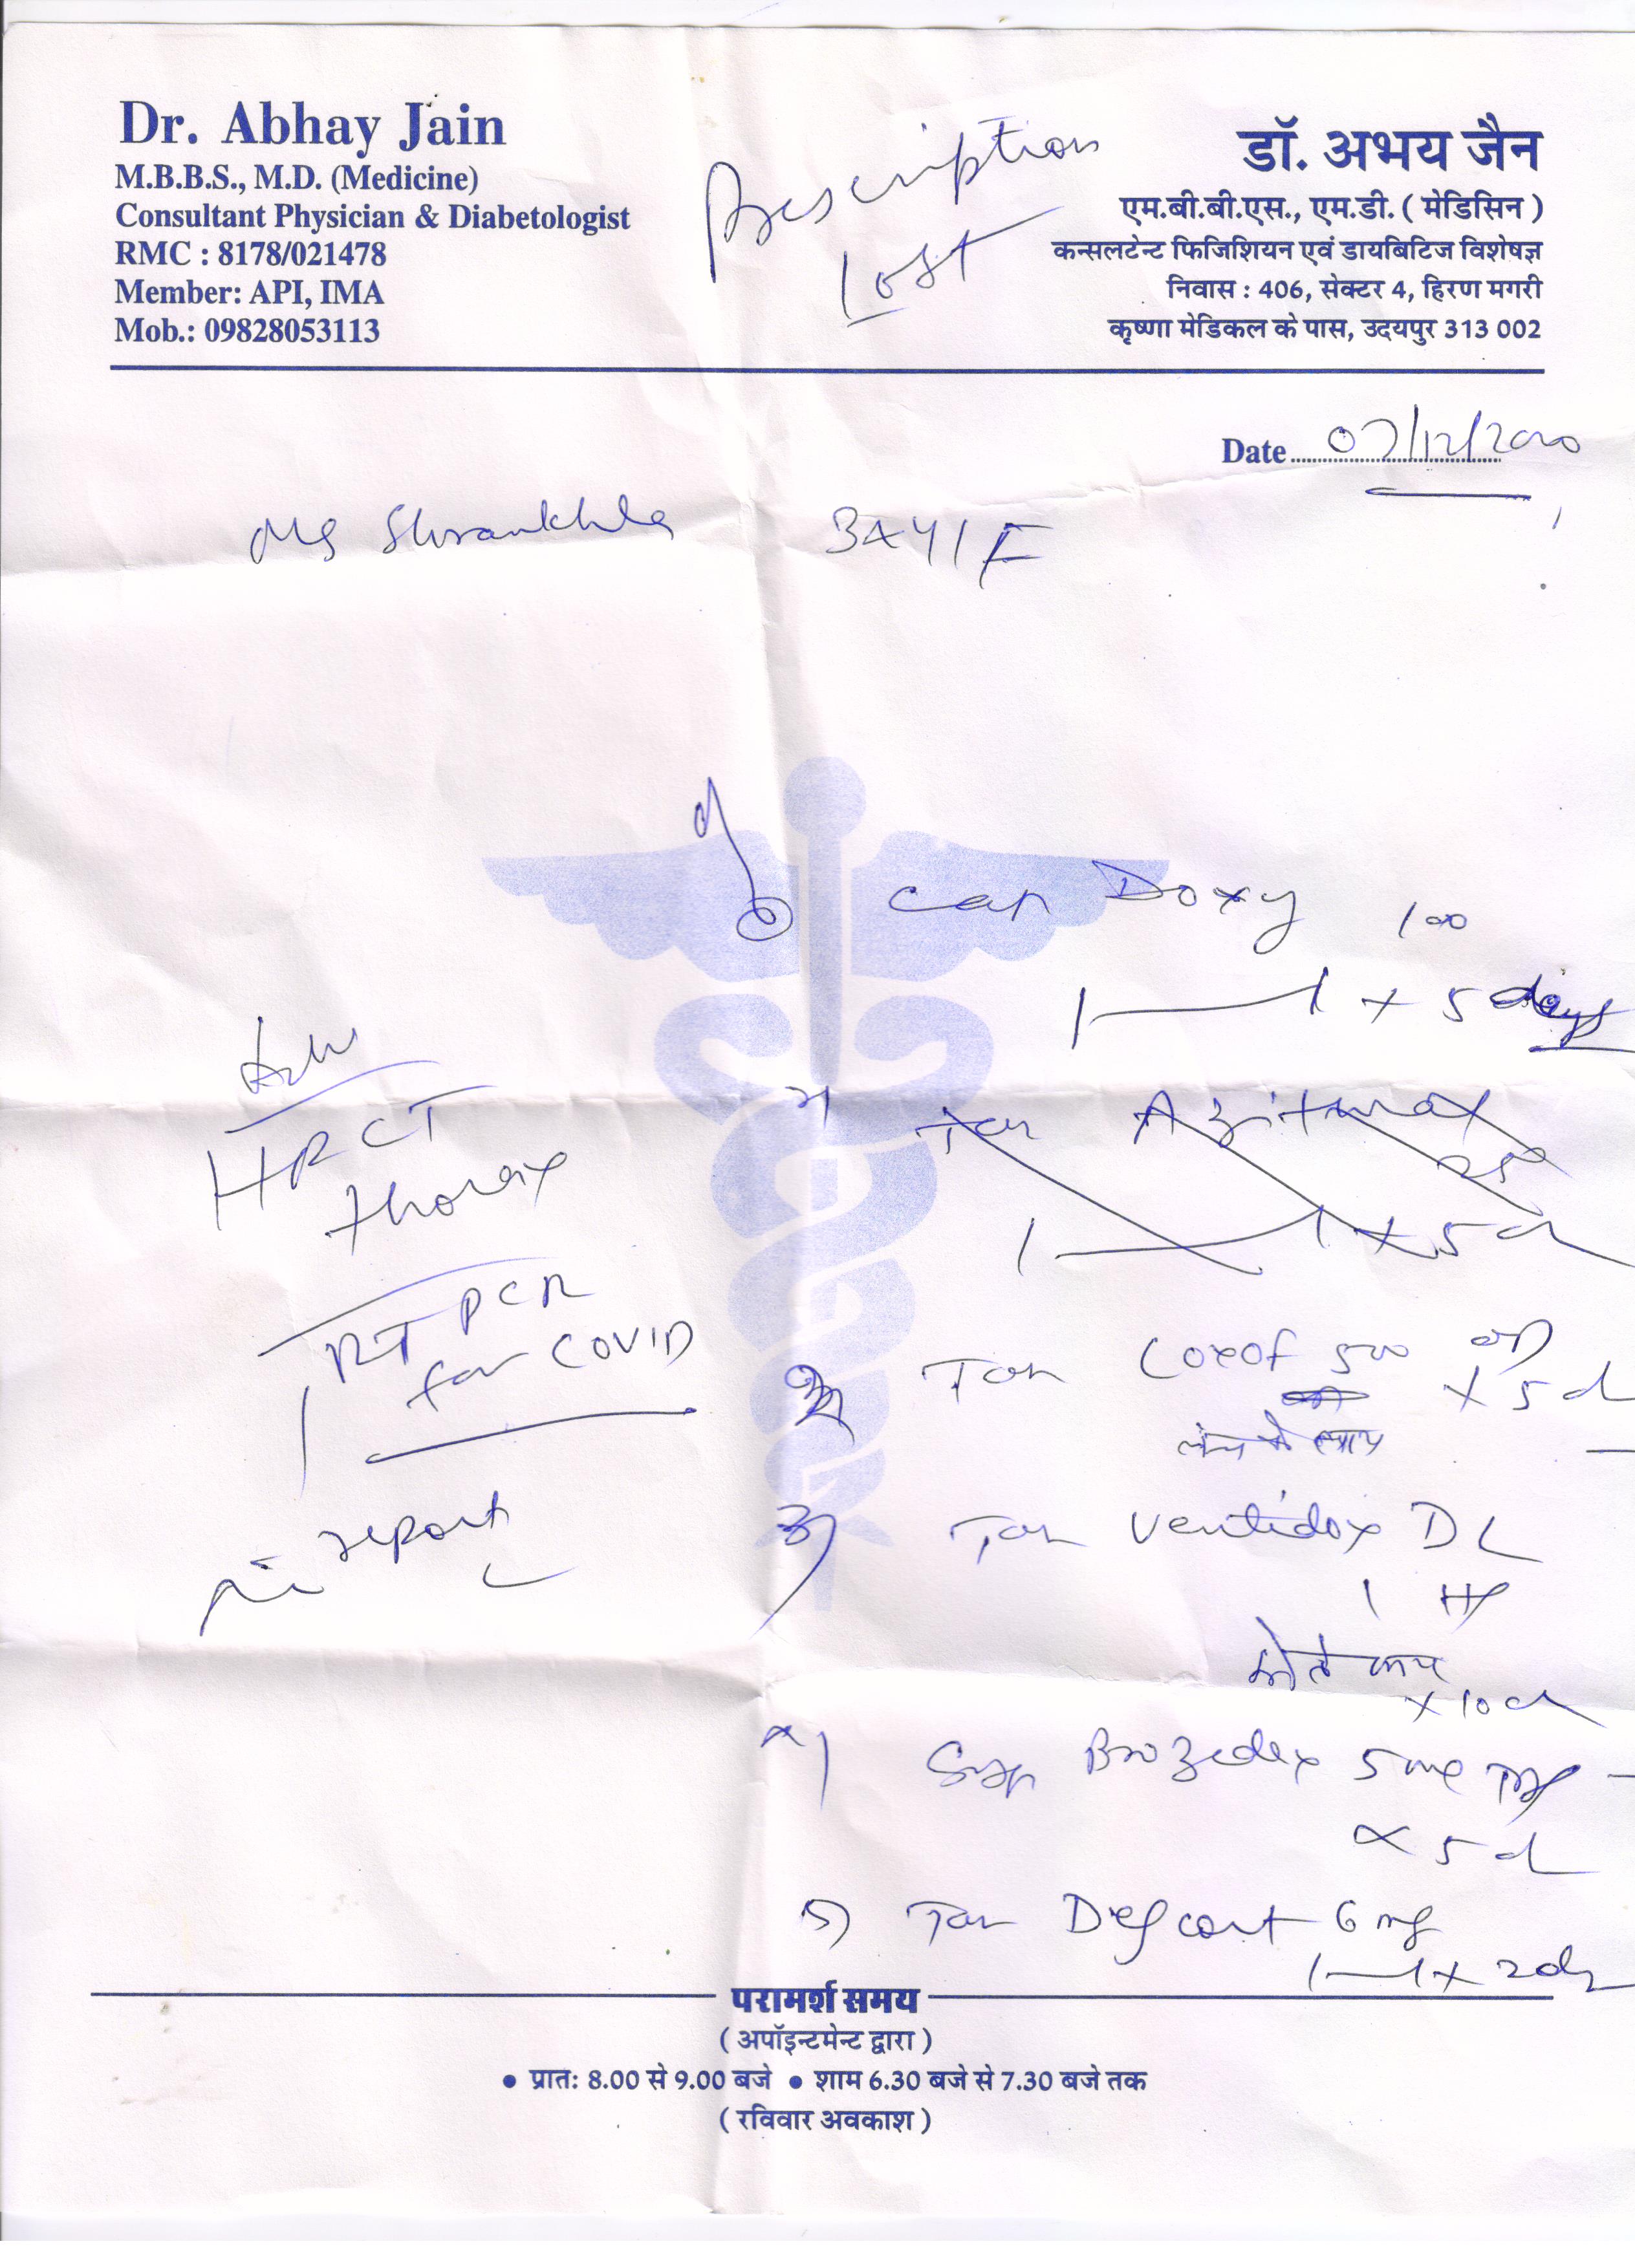 Dr. Abhay Jain
M.B.B.S., M.D. (Medicine)
Consultant Physician & Diabetologist
RMC : 8178/021478
Member: API, IMA
Mob.: 09828053113
Prescription
Lost
डॉ. अभय जैन
एम.बी.बी.एस., एम.डी. ( मेडिसिन )
कन्सलटेन्ट फिजिशियन एवं डायबिटिज विशेषज्ञ
निवास : 406, सेक्टर 4, हिरण मगरी
कृष्णा मेडिकल के पास, उदयपुर 313 002
Date 07/12/2020
Ms Shrankhla
Cap Doxy 100
1—1 x 5 days
Adv
HRCT
thorax
RT PCR
for COVID
report
Tab Azithral
1—1 x 5d
Tab 500 OD
x 5d
3) Tab Ventidox DL
1 HS
x 10d
Syp Brozedex 5ml
x 5d
5) Tab Defcort 6 mg
1—1 x 2d
परामर्श समय
( अपॉइन्टमेन्ट द्वारा )
• प्रातः 8.00 से 9.00 बजे • शाम 6.30 बजे से 7.30 बजे तक
( रविवार अवकाश )